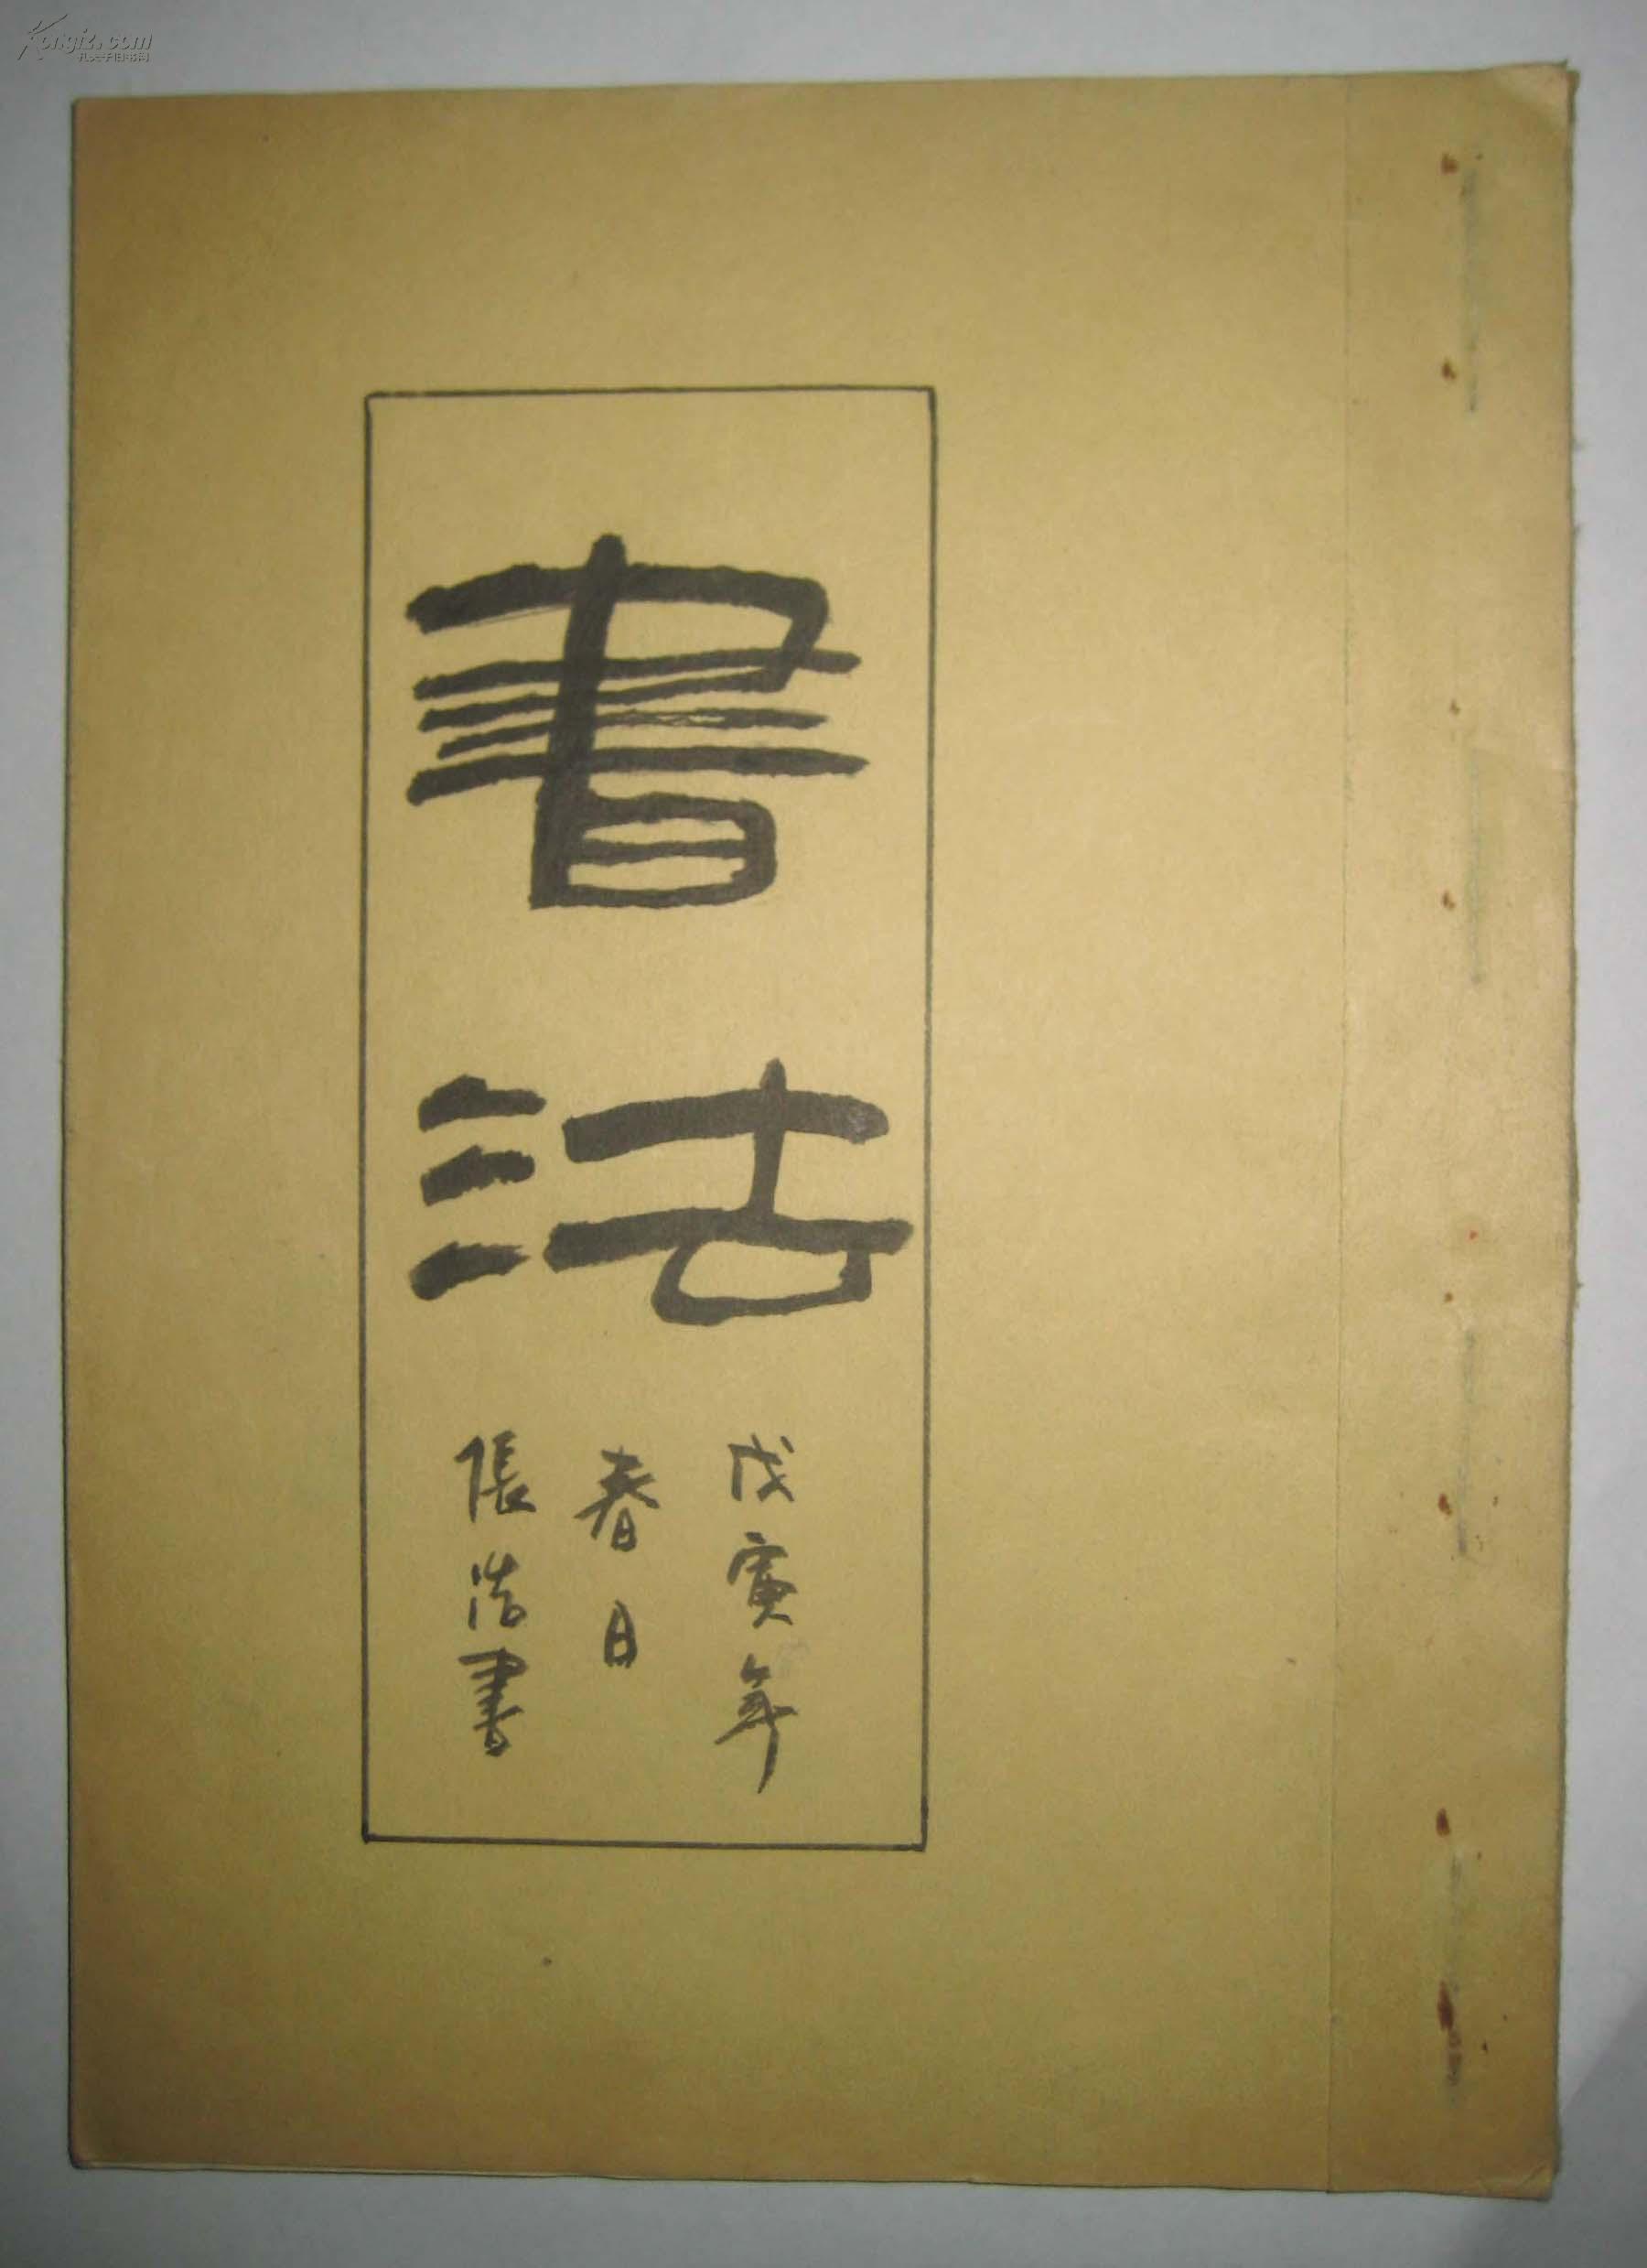 書法
戊寅年
春日
張浩書
Kongfz.com
孔夫子旧书网